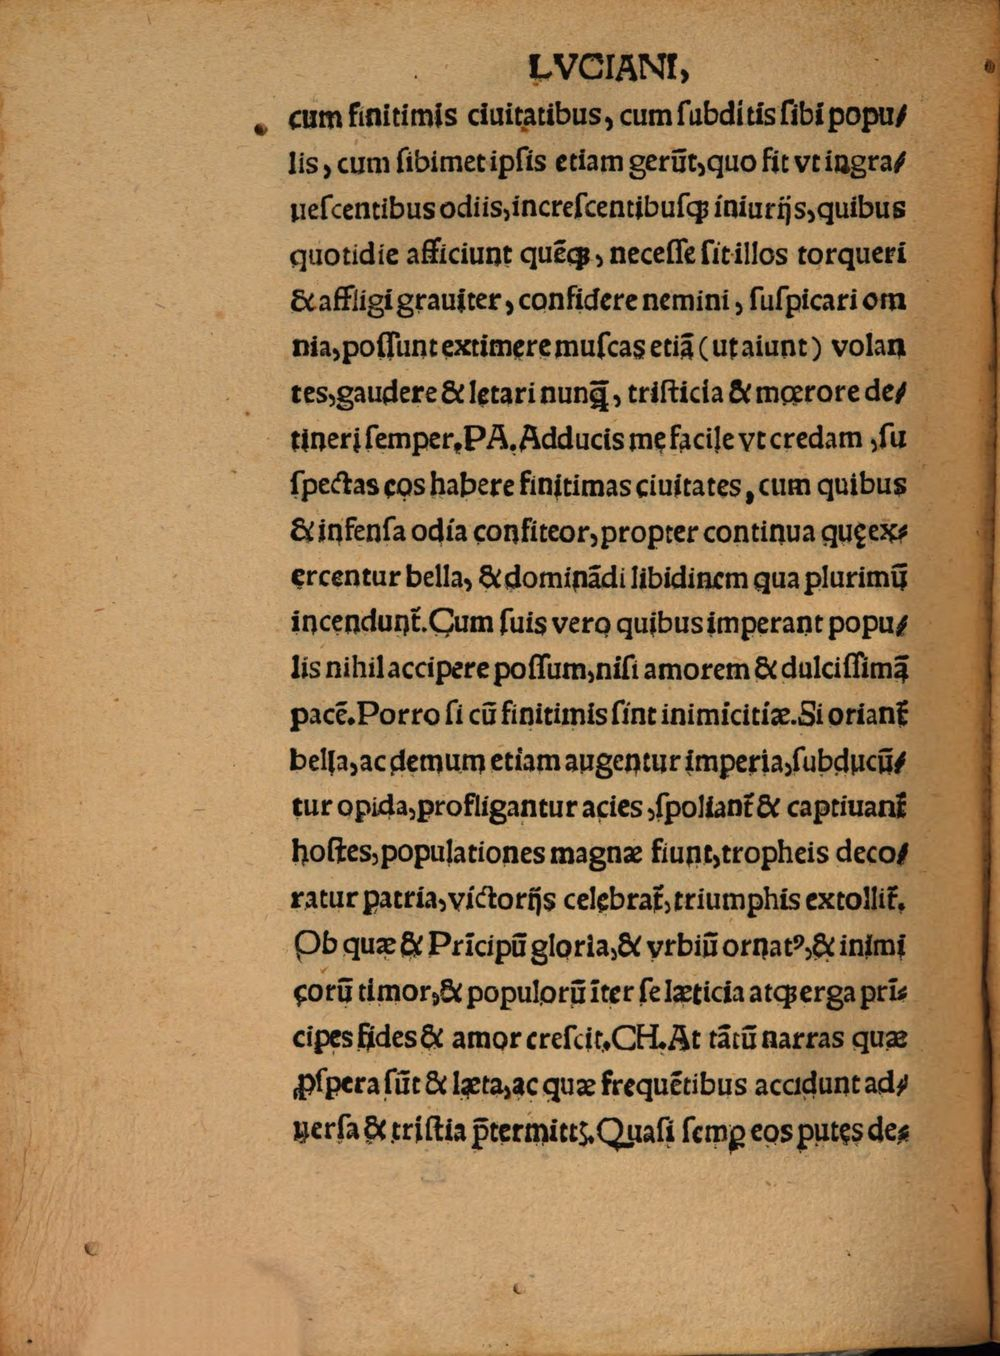 LVCIANI,
cum finitimis ciuitatibus, cum ſubditis ſibi popu/
lis, cum ſibimet ipſis etiam gerūt, quo fit vt ingra/
ueſcentibus odiis, increſcentibuſqꝫ iniurijs, quibus
quotidie afficiunt quēqꝫ, neceſſe ſit illos torqueri
& affligi grauiter, confidere nemini, ſuſpicari om
nia, poſſunt extimere muſcas etiā (ut aiunt) volan
tes, gaudere & letari nunq̄, triſticia & mœrore de/
tineri ſemper. PA. Adducis me facile vt credam, ſu
ſpectas eos habere finitimas ciuitates, cum quibus
& infenſa odia confiteor, propter continua quę ex/
ercentur bella, & dominādi libidinem qua plurimū
incendunt᷑. Cum ſuis vero quibus imperant popu/
lis nihil accipere poſſum, niſi amorem & dulciſſimā
pacē. Porro ſi cū finitimis ſint inimicitiæ. Si oriant᷑
bella, ac demum etiam augentur imperia, ſubducū/
tur opida, profligantur acies, ſpoliant᷑ & captiuant᷑
hoſtes, populationes magnæ fiunt, tropheis deco/
ratur patria, victorijs celebrat᷑, triumphis extollit᷑.
Ob quæ & Prīcipū gloria, & vrbiū ornatꝰ, & inimi
corū timor, & populorū īter ſe læticia atqꝫ erga prī/
cipes fides & amor creſcit. CH. At tātū narras quæ
ꝓſpera ſūt & læta, ac quæ frequētibus accidunt ad/
uerſa & triſtia p̄termittꝭ. Quaſi ſemꝑ eos putes de/